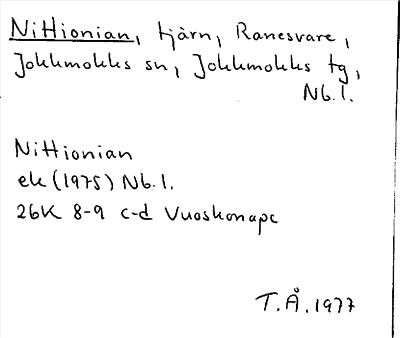 Nittionian, tjärn, Ranesvare,
Jokkmokks sn, Jokkmokks tg,
Nb. l.
Nittionian
ek (1975) Nb. l.
26K 8-9 c-d Vuoskonape
T. Å. 1977